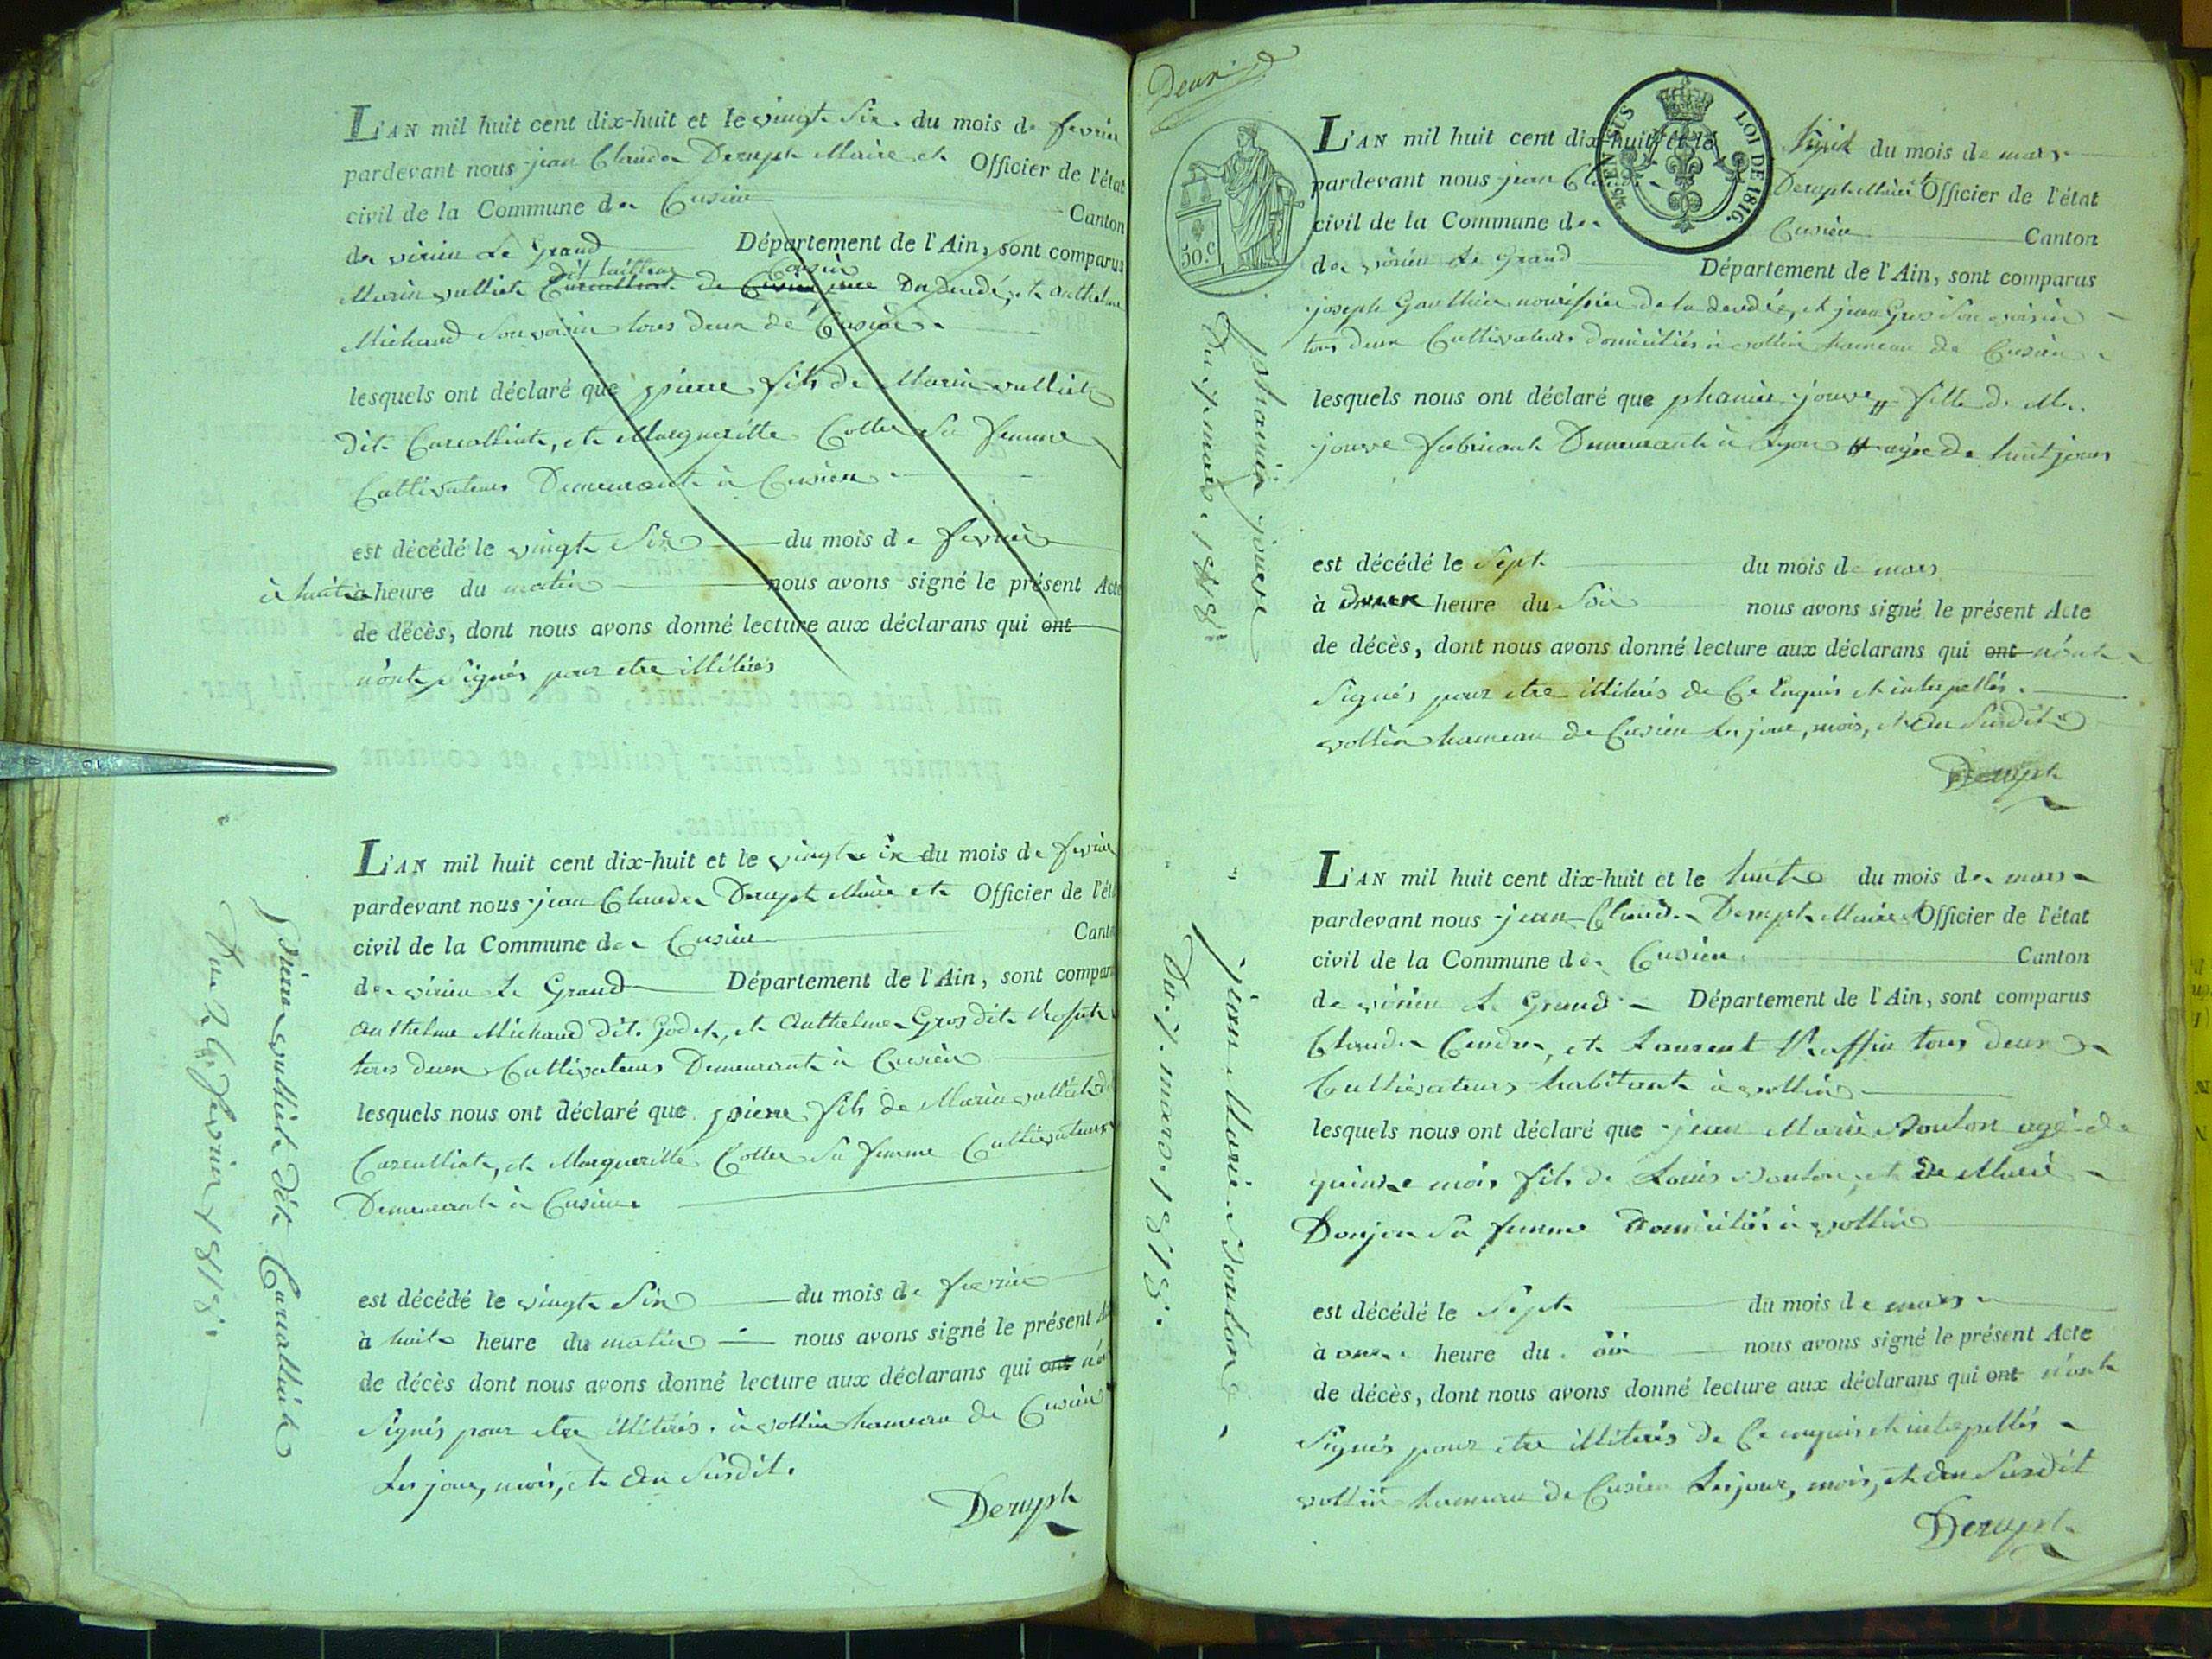 L'AN mil huit cent dix-huit et le vingt Six du mois de fevrier
pardevant nous jean Claude Deruph Maire et Officier de l'état
civil de la Commune de Cusieu Canton
de virieu Le Grand Département de l'Ain, sont comparus
Marin vulliet de Cusieu Du décédé, et anthelme
Michaud Son voisin tous deux de Cusieu.
lesquels ont déclaré que pierre fils de Marin vulliet
dit, et Margueritte Collet Sa femme
Cultivateurs Demeurant à Cusieu
est décédé le vingt Six du mois de fevrier
à huit heure du matin nous avons signé le présent Acte
de décès, dont nous avons donné lecture aux déclarans qui ont
n'ont Signés pour etre illiterés
L'AN mil huit cent dix-huit et le vingt Six du mois de fevrier
pardevant nous jean Claude Deruph Maire et Officier de l'éta
civil de la Commune de Cusieu Canto
de virieu Le Grand Département de l'Ain, sont compar
anthelme Michaud dit Godet, et Anthelme Gros dit
tous deux Cultivateurs Demeurant à Cusieu
lesquels nous ont déclaré que pierre fils de Marin vulliet
et Margueritte Collet Sa femme Cultivateurs
Demeurant à Cusieu
est décédé le vingt Six du mois de fevrier
à huit heure du matin nous avons signé le présent A
de décès dont nous avons donné lecture aux déclarans qui ont n'o
Signés pour etre illiterés. à vollien hameau de Cusieu
Les jour, mois, et an Susdit.
Deruph
pierre vulliet dit
Du 26 fevrier 1818.
Deux
50.c
EN SUS
LOI DE 1816.
L'AN mil huit cent dix-huit et le huit du mois de mars
pardevant nous jean Cla Deruph Maire et Officier de l'état
civil de la Commune de Cusieu Canton
de virieu Le Grand Département de l'Ain, sont comparus
joseph Gauthier nourissier de la decedée, et jean Gros Son voisin
tous deux Cultivateurs domiciliés à vollien hameau de Cusieu
lesquels nous ont déclaré que phanie jouve fille de M.
jouve fabricant Demeurant à Lyon agée de huit jours
est décédé le Sept du mois de mars
à heure du Soir nous avons signé le présent Acte
de décès, dont nous avons donné lecture aux déclarans qui ont n'ont
Signés pour etre illiterés de Ce Enquis et interpellés.
vollien hameau de Cusieu Les jour, mois, et an Susdit
Deruph
phanie jouve
Du 7 mars 1818.
L'AN mil huit cent dix-huit et le huit du mois de mars
pardevant nous jean Claude Deruph Maire et Officier de l'état
civil de la Commune de Cusieu Canton
de virieu Le Grand Département de l'Ain, sont comparus
Claude Cendre, et Laurent Ruffin tous deux
Cultivateurs habitant à vollien
lesquels nous ont déclaré que jean Marie Douton agé de
quinze mois fils de Louis Douton, et de Marie
Donjon Sa femme Domiciliés à vollien
est décédé le Sept du mois de mars
à onze heure du Soir nous avons signé le présent Acte
de décès, dont nous avons donné lecture aux déclarans qui ont n'ont
Signés pour etre illiterés de Ce enquis et interpellés
vollien hameau de Cusieu Les jour, mois, et an Susdit
Deruph
jean Marie Douton
Du 7 mars 1818.